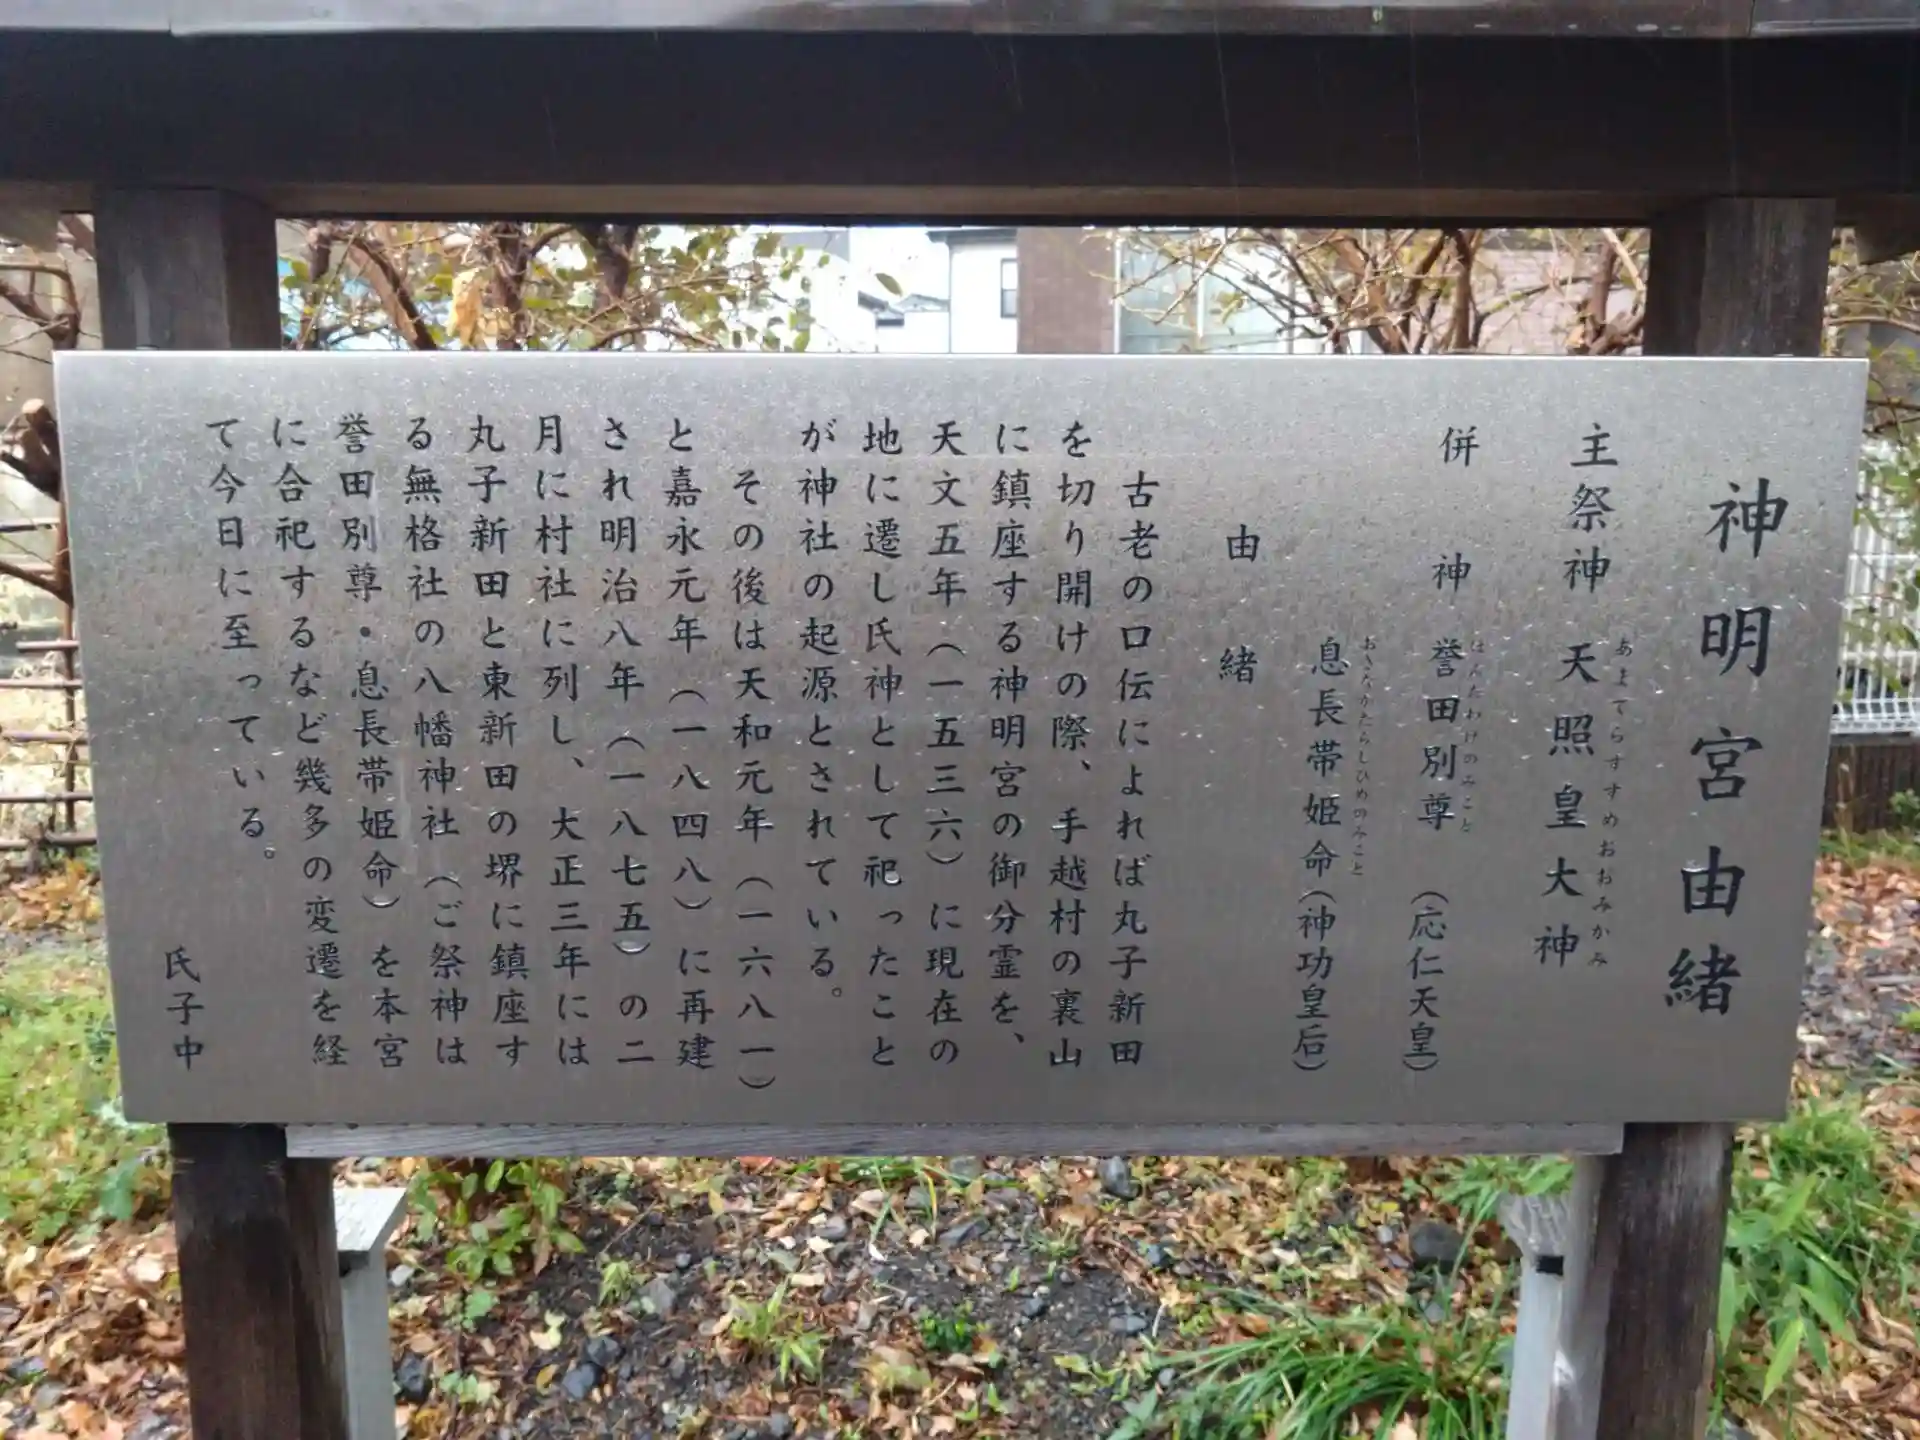 神明宮由緒
主祭神 天照皇大神
あまてらすすめおおみかみ
併神 誉田別尊 （応仁天皇）
ほんだわけのみこと
息長帯姫命（神功皇后）
おきながたらしひめのみこと
由緒
古老の口伝によれば丸子新田
を切り開けの際、手越村の裏山
に鎮座する神明宮の御分霊を、
天文五年（一五三六）に現在の
地に遷し氏神として祀ったこと
が神社の起源とされている。
その後は天和元年（一六八一）
と嘉永元年（一八四八）に再建
され明治八年（一八七五）の二
月に村社に列し、大正三年には
丸子新田と東新田の堺に鎮座す
る無格社の八幡神社（ご祭神は
誉田別尊・息長帯姫命）を本宮
に合祀するなど幾多の変遷を経
て今日に至っている。
氏子中